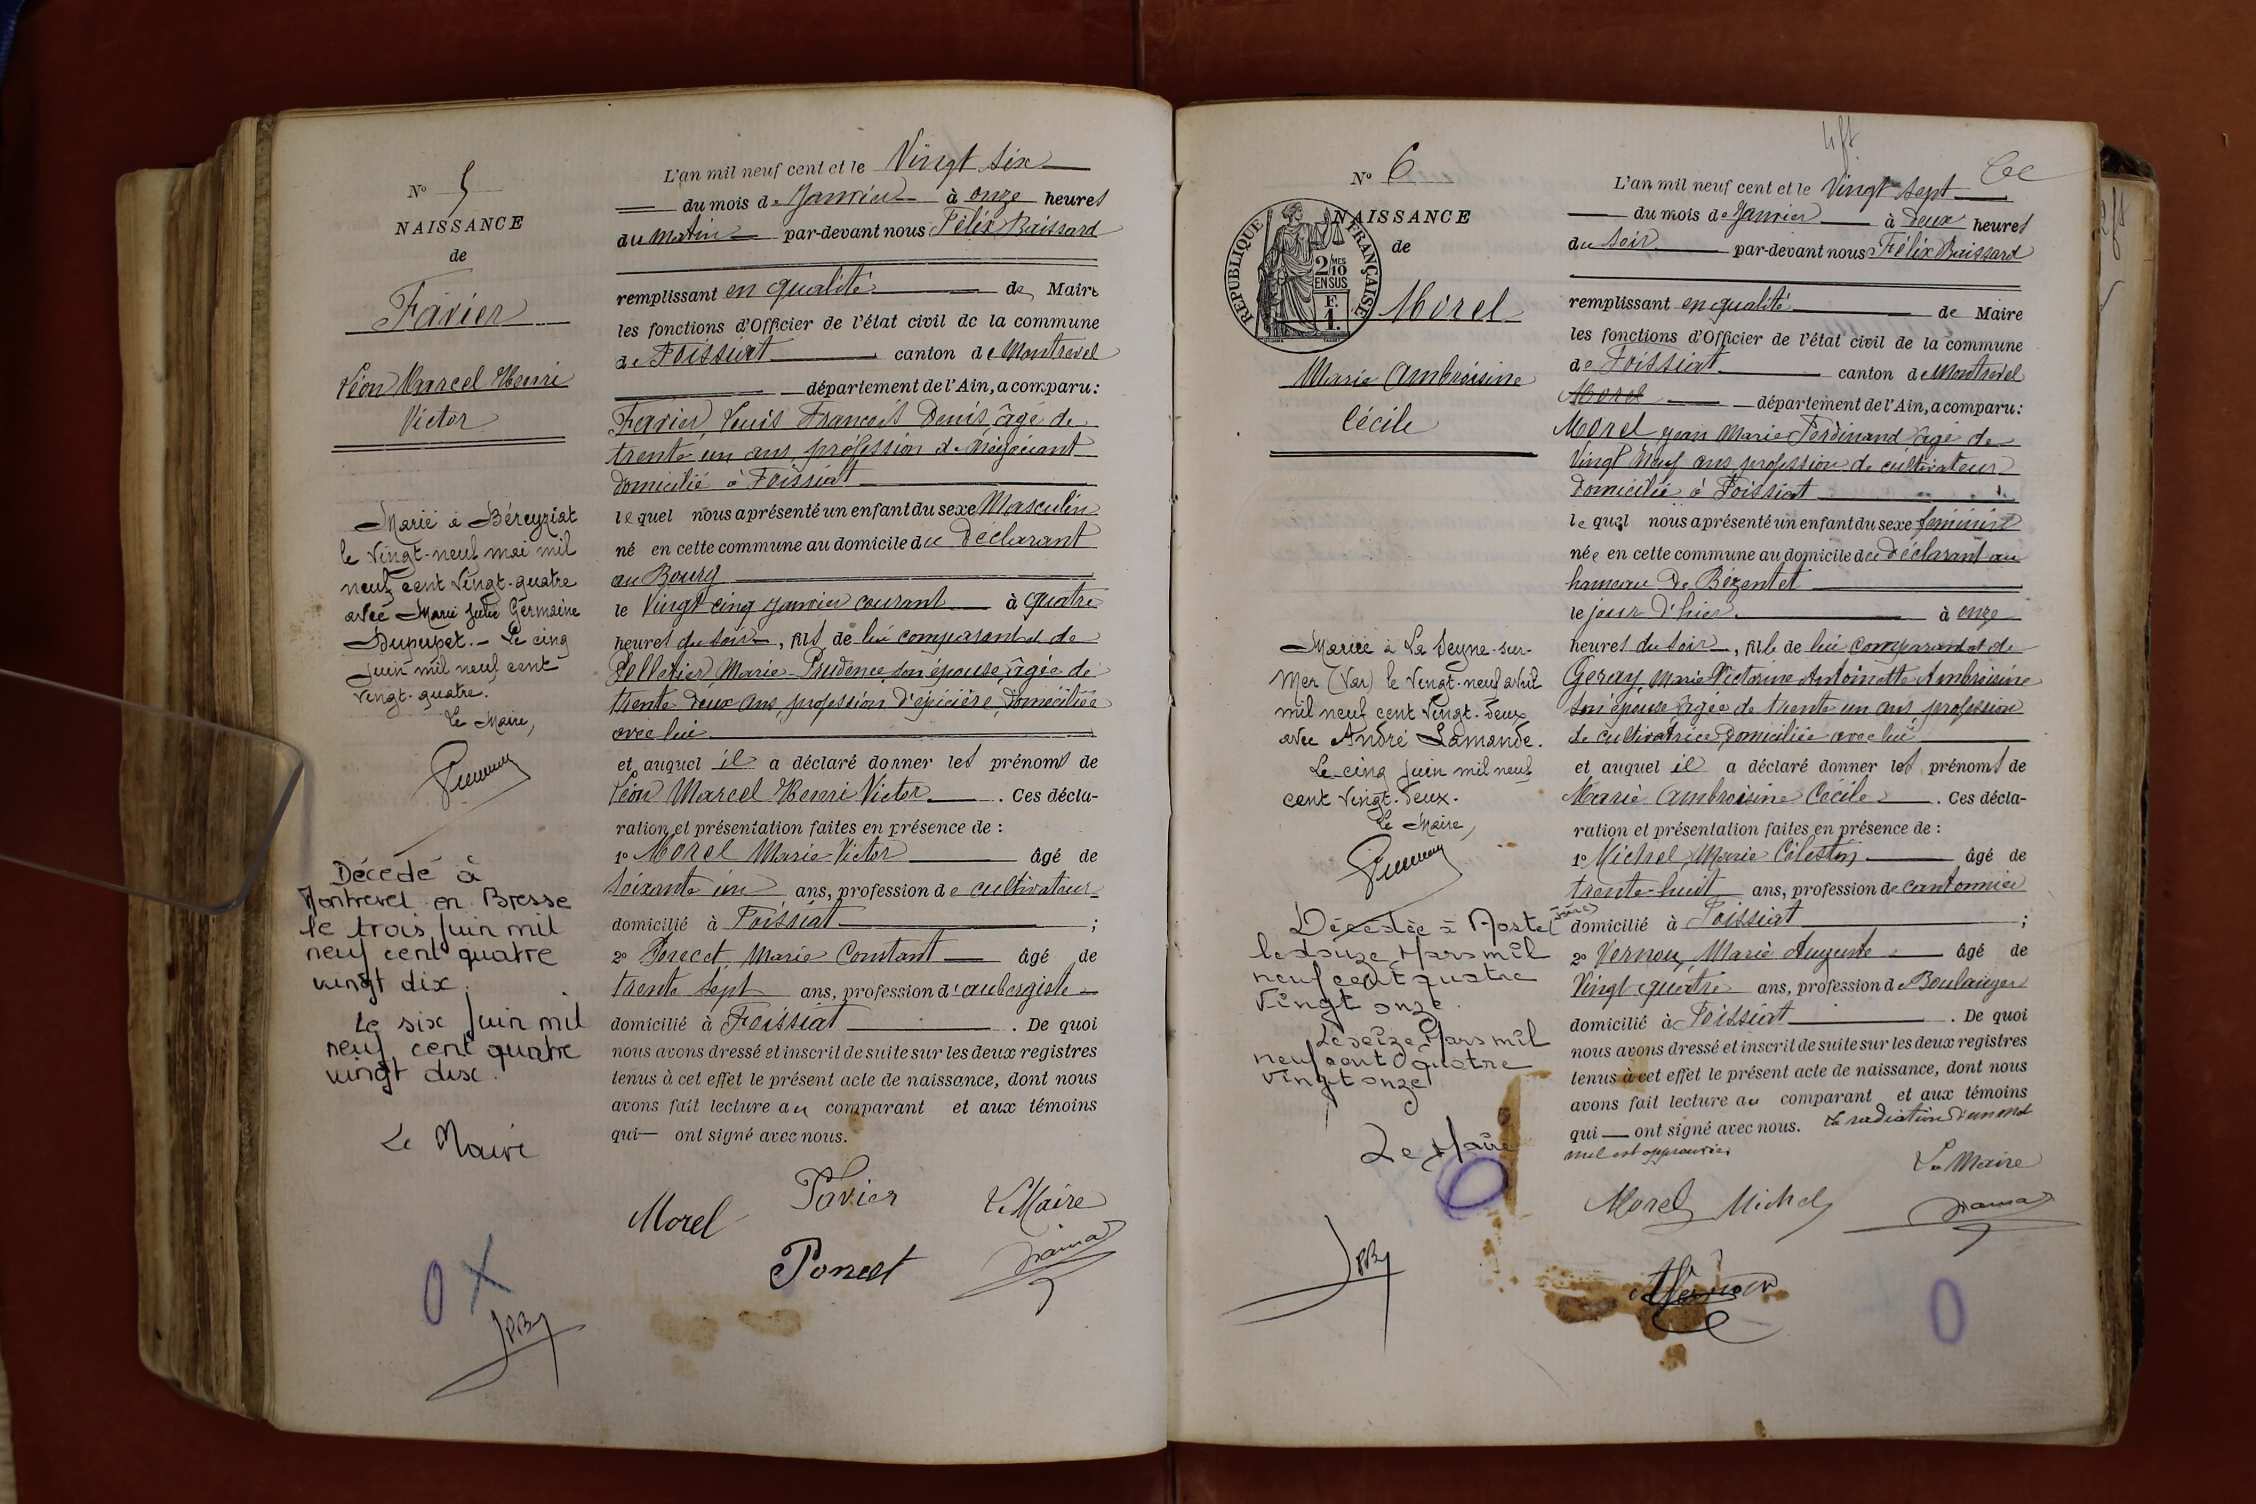 N° 5
NAISSANCE
de
Favier
Léon Marcel Henri
Victor
Marié à Béreyziat
le vingt-neuf mai mil
neuf cent vingt-quatre
avec Marie Julie Germaine
Dupupet. - Le cinq
juin mil neuf cent
vingt-quatre.
Le Maire,
Décédé à
Montrevel en Bresse
le trois juin mil
neuf cent quatre
vingt dix.
Le six juin mil
neuf cent quatre
vingt dix.
Le Maire
L'an mil neuf cent et le Vingt six
du mois de Janvier à onze heures
du Matin par-devant nous Félix Baissard
remplissant en qualité de Maire
les fonctions d'Officier de l'état civil de la commune
de Foissiat canton de Montrevel
département de l'Ain, a comparu :
Favier Louis François Denis âgé de
trente un ans, profession de Négociant
domicilié à Foissiat
lequel nous a présenté un enfant du sexe Masculin
né en cette commune au domicile du Déclarant
au Bourg
le Vingt cinq Janvier courant à quatre
heures du soir, fils de lui comparant et de
Pelletier Marie Prudence son épouse, âgée de
trente deux ans, profession d'épicière, domiciliée
avec lui
et auquel il a déclaré donner les prénoms de
Léon Marcel Henri Victor. Ces décla-
ration et présentation faites en présence de :
1° Morel Marie Victor âgé de
soixante un ans, profession de cultivateur
domicilié à Foissiat ;
2° Poncet Marie Constant âgé de
trente sept ans, profession d'aubergiste
domicilié à Foissiat. De quoi
nous avons dressé et inscrit de suite sur les deux registres
tenus à cet effet le présent acte de naissance, dont nous
avons fait lecture au comparant et aux témoins
qui ont signé avec nous.
Morel Favier Le Maire
Poncet
N° 6
NAISSANCE
de
RÉPUBLIQUE FRANÇAISE
2/10 MES
EN SUS
F.
1.
Morel
Marie Ambroisine
Cécile
Mariée à La Seyne-sur-
Mer (Var) le vingt-neuf avril
mil neuf cent vingt-deux
avec André Lamande.
Le cinq juin mil neuf
cent vingt-deux.
Le Maire,
Décédée à
le douze Mars mil
neuf cent quatre
vingt onze.
Le seize Mars mil
neuf cent quatre
vingt onze
Le Maire
L'an mil neuf cent et le Vingt sept
du mois de Janvier à Deux heures
du soir par-devant nous Félix Baissard
remplissant en qualité de Maire
les fonctions d'Officier de l'état civil de la commune
de Foissiat canton de Montrevel
Morel département de l'Ain, a comparu :
Morel Jean Marie Ferdinand âgé de
Vingt Neuf ans, profession de cultivateur
domicilié à Foissiat
lequel nous a présenté un enfant du sexe féminin
née en cette commune au domicile du Déclarant au
hameau de Bézentet
le jour d'hier à onze
heures du soir, fille de lui comparant et de
Geray Marie Victorine Antoinette Ambroisine
son épouse âgée de trente un ans, profession
de cultivatrice, domiciliée avec lui
et auquel il a déclaré donner les prénoms de
Marie Ambroisine Cécile. Ces décla-
ration et présentation faites en présence de :
1° Michel Marie Célestin âgé de
trente-huit ans, profession de cantonnier
domicilié à Foissiat ;
2° Vernoux Marie Auguste âgé de
Vingt quatre ans, profession de Boulanger
domicilié à Foissiat. De quoi
nous avons dressé et inscrit de suite sur les deux registres
tenus à cet effet le présent acte de naissance, dont nous
avons fait lecture au comparant et aux témoins
qui ont signé avec nous. La radiation d'un mot
nul est approuvée.
Le Maire
Morel Michel